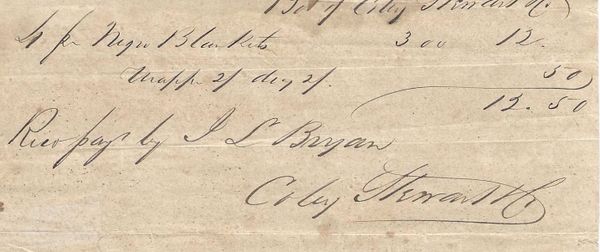 Bot of Coley Stewart & Co
4 pr Negro Blankets 3 00 12.
Wrapr 2/ dray 2/. 50
12.50
Rec payt by J L Bryan
Coley Stewart & Co